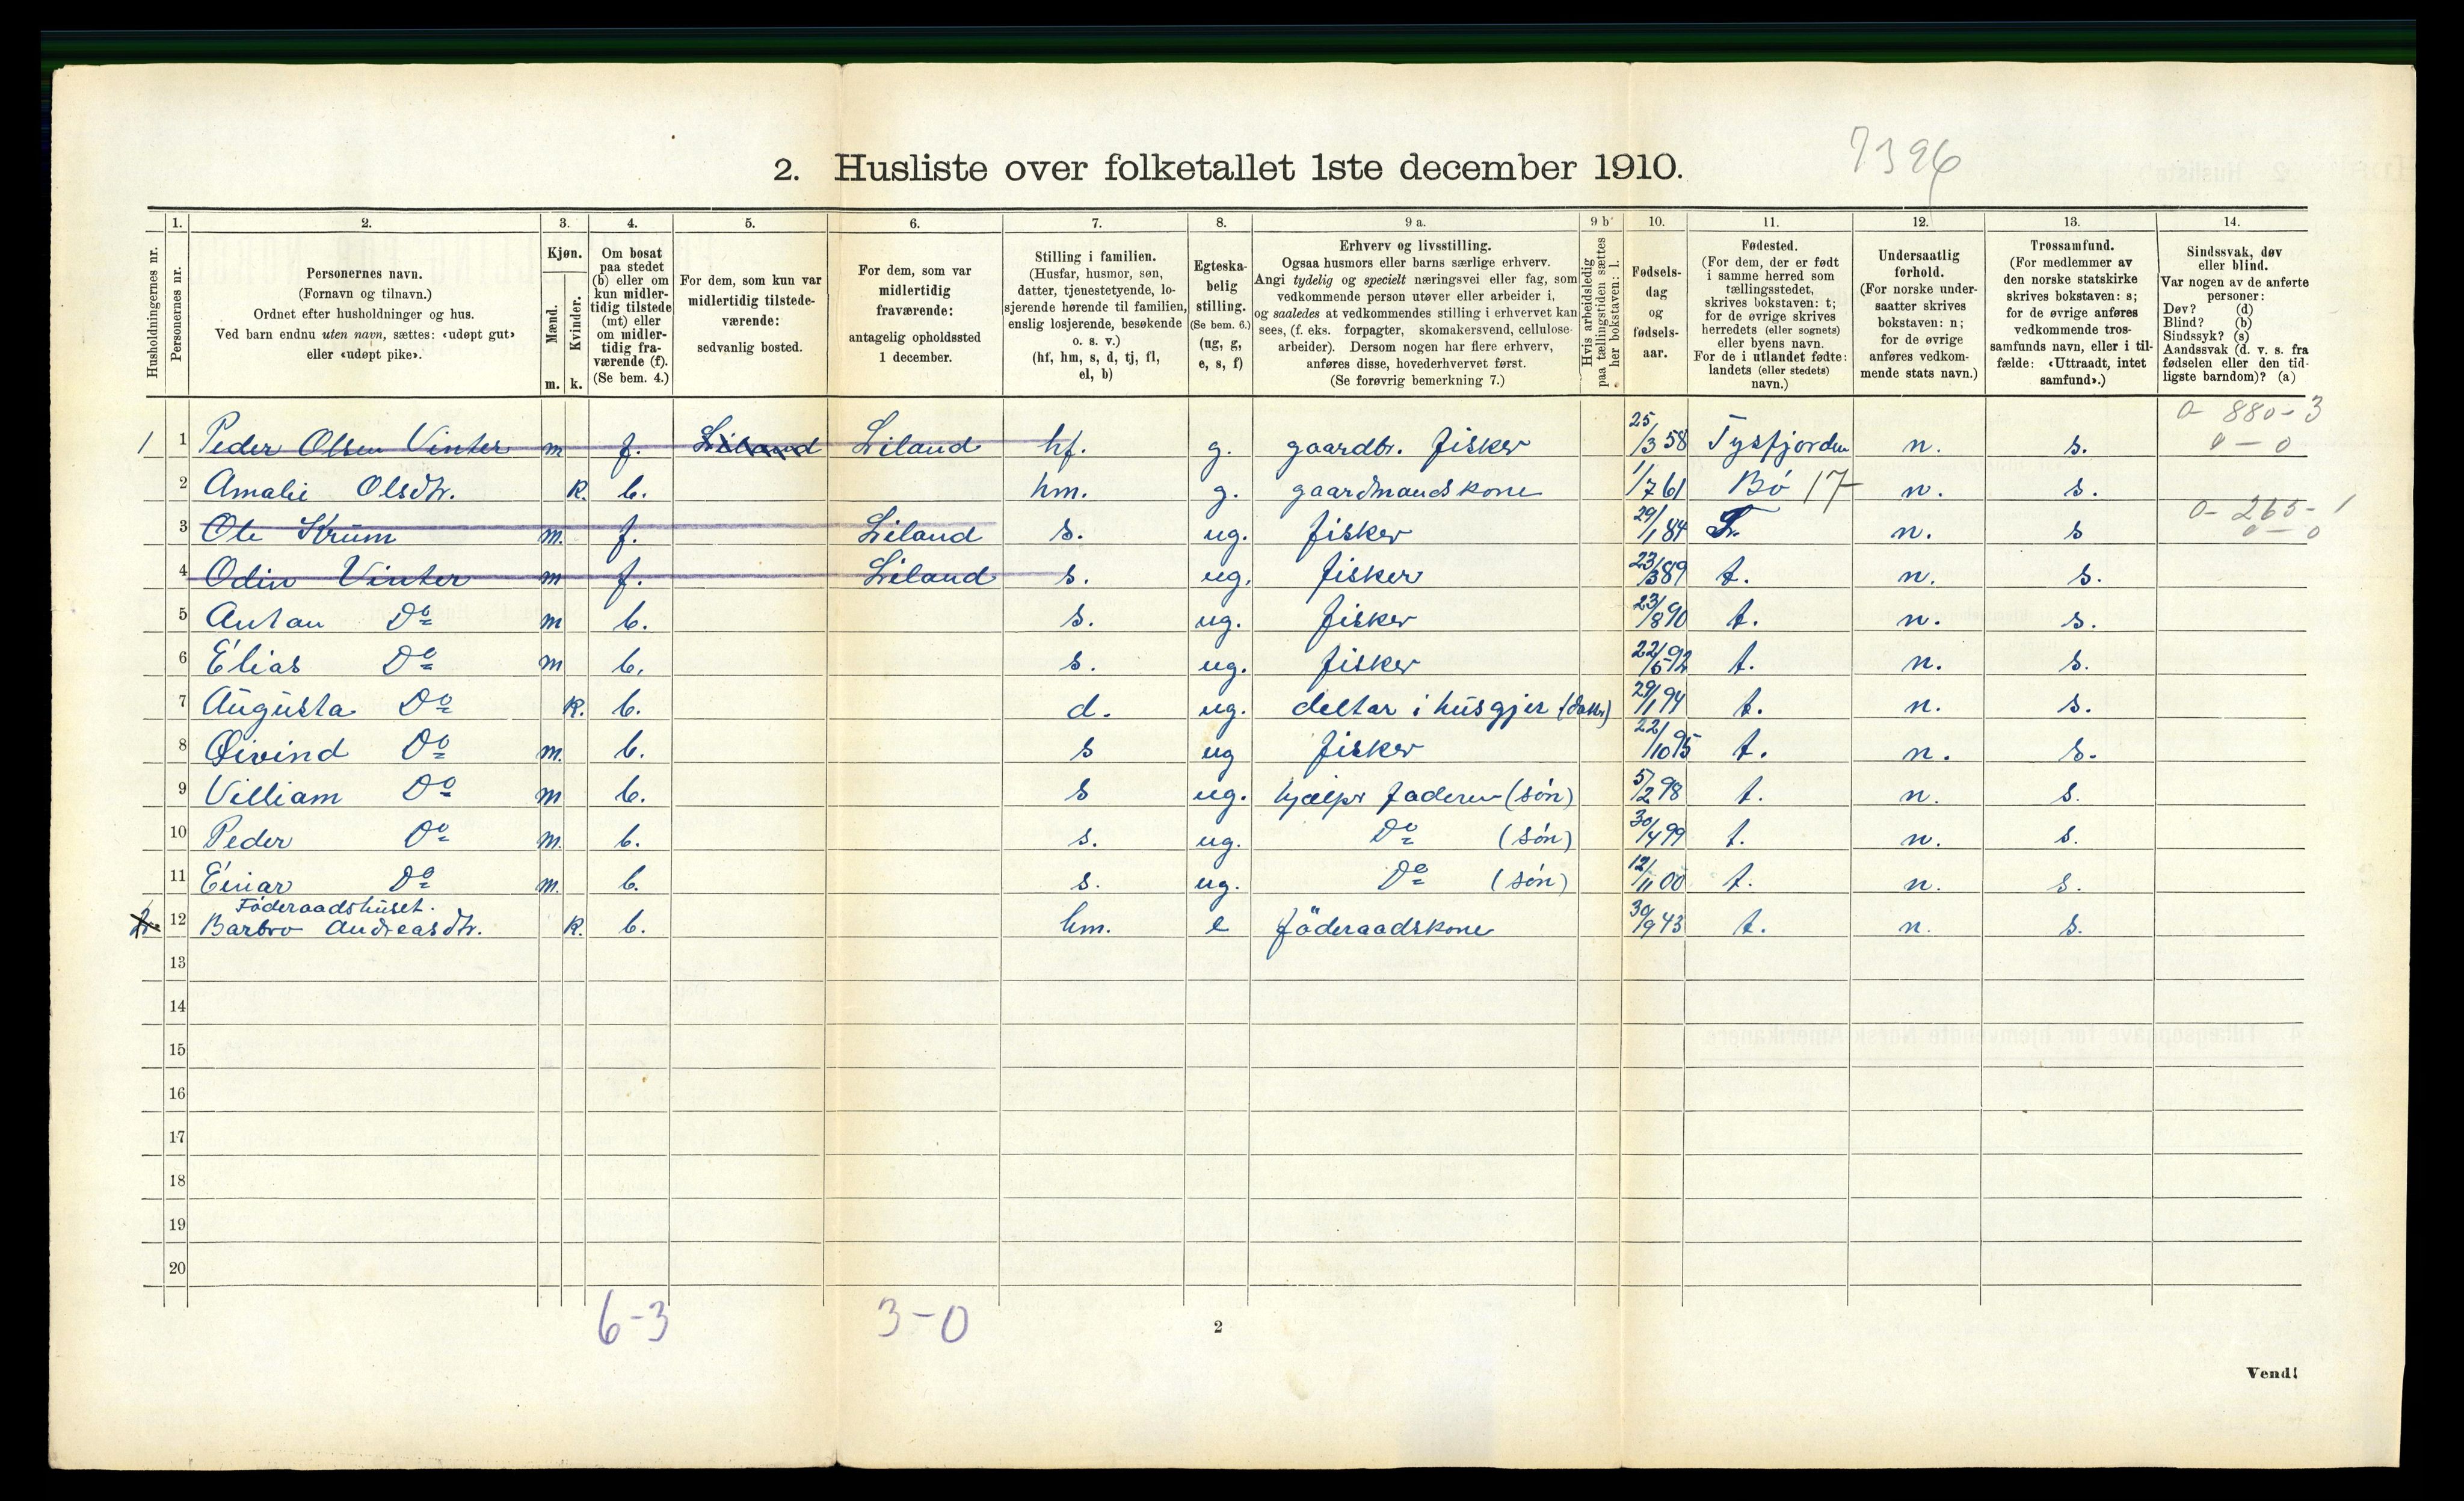 7396
2. Husliste over folketallet 1ste december 1910.
Husholdningernes nr.
1.
Personernes nr.
2.
Personernes navn.
(Fornavn og tilnavn.)
Ordnet efter husholdninger og hus.
Ved barn endnu uten navn, sættes: «udøpt gut»
eller «udøpt pike».
3.
Kjøn.
Mænd.
Kvinder.
m. k.
4.
Om bosat
paa stedet
(b) eller om
kun midler-
tidig tilstede
(mt) eller
om midler-
tidig fra-
værende (f).
(Se bem. 4.)
5.
For dem, som kun var
midlertidig tilstede-
værende:
sedvanlig bosted.
6.
For dem, som var
midlertidig
fraværende:
antagelig opholdssted
1 december.
7.
Stilling i familien.
(Husfar, husmor, søn,
datter, tjenestetyende, lo-
sjerende hørende til familien,
enslig losjerende, besøkende
o. s. v.)
(hf, hm, s, d, tj, fl,
el, b)
8.
Egteska-
belig
stilling.
(Se bem. 6.)
(ug, g,
e, s, f)
9 a.
Erhverv og livsstilling.
Ogsaa husmors eller barns særlige erhverv.
Angi tydelig og specielt næringsvei eller fag, som
vedkommende person utøver eller arbeider i,
og saaledes at vedkommendes stilling i erhvervet kan
sees, (f. eks. forpagter, skomakersvend, cellulose-
arbeider). Dersom nogen har flere erhverv,
anføres disse, hovederhvervet først.
(Se forøvrig bemerkning 7.)
9 b
Hvis arbeidsledig
paa tællingstiden sættes
her bokstaven: l.
10.
Fødsels-
dag
og
fødsels-
aar.
11.
Fødested.
(For dem, der er født
i samme herred som
tællingsstedet,
skrives bokstaven: t;
for de øvrige skrives
herredets (eller sognets)
eller byens navn.
For de i utlandet fødte:
landets (eller stedets)
navn.)
12.
Undersaatlig
forhold.
(For norske under-
saatter skrives
bokstaven: n;
for de øvrige
anføres vedkom-
mende stats navn.)
13.
Trossamfund.
(For medlemmer av
den norske statskirke
skrives bokstaven: s;
for de øvrige anføres
vedkommende tros-
samfunds navn, eller i til-
fælde: «Uttraadt, intet
samfund».)
14.
Sindssvak, døv
eller blind.
Var nogen av de anførte
personer:
Døv? (d)
Blind? (b)
Sindssyk? (s)
Aandssvak (d. v. s. fra
fødselen eller den tid-
ligste barndom)? (a)
0- 880-3
1 1 Peder Olsen Vinter m f. Liland Liland hf. g. gaardbr. fisker 25/3 58 Tysfjorden n. s. 0 - 0
2 Amalie Olsdtr. k. b. hm. g. gaardmandskone 1/7 61 Bö 17 n. s.
0- 265-1
3 Ole Krum m. f. Liland s. ug. fisker 29/1 84 n. s 0 - 0
4 Odin Vinter m f. Liland s. ug. fisker 23/3 89 t. n. s.
5 Antan Do m b. s. ug. fisker 23/8 90 t. n. s.
6 Elias Do m b. s. ug. fisker 22/5 92 t. n. s.
7 Augusta Do k. b. d. ug. deltar i husgjer (datr) 29/1 94 t. n. s.
8 Øivind Do m. b. s ug fisker 22/10 95 t. n. s.
9 Villiam Do m b. s ug. hjælpr faderen (sön) 5/2 98 t. n. s.
10 Peder Do m. b. s. ug. Do (sön) 30/4 99 t. n. s.
11 Einar Do m. b. s. ug. Do (sön) 12/11 00 t. n. s.
Föderaadshuset.
2. 12 Barbro Andreasdtr. k. b. hm. e föderaadskone 30/9 43 t. n. s.
13
14
15
16
17
18
19
20
6-3 3-0
2
Vend!